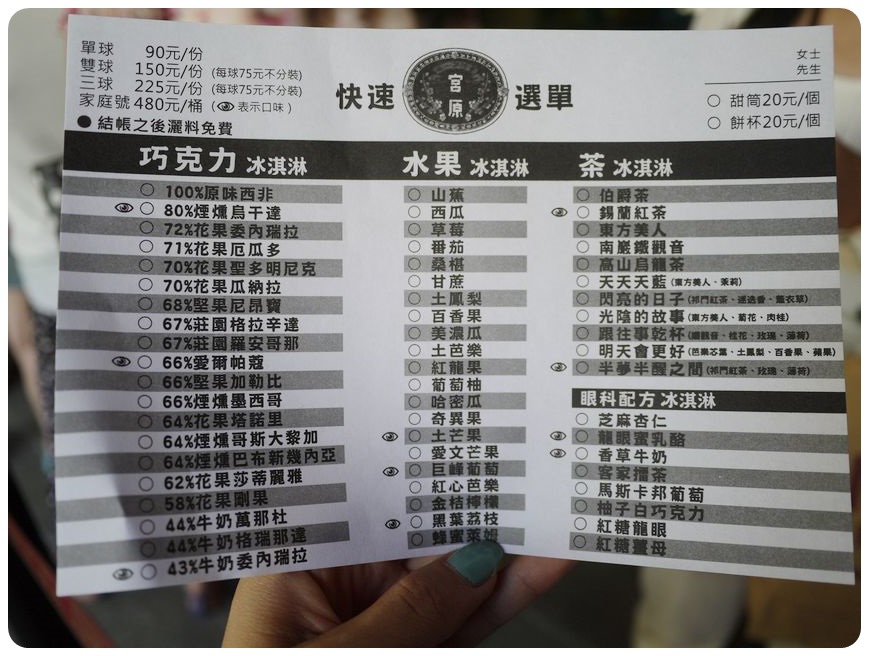 單球 90元/份
雙球 150元/份 (每球75元不分裝)
三球 225元/份 (每球75元不分裝)
家庭號 480元/桶 ( 表示口味 )
● 結帳之後灑料免費
快速 宮原 選單
女士
先生
○ 甜筒20元/個
○ 餅杯20元/個
巧克力 冰淇淋
○ 100%原味西非
○ 80%煙燻烏干達
○ 72%花果委內瑞拉
○ 71%花果厄瓜多
○ 70%花果聖多明尼克
○ 70%花果瓜納拉
○ 68%堅果尼昂寶
○ 67%莊園格拉辛達
○ 67%莊園羅安哥那
○ 66%愛爾帕蔻
○ 66%堅果加勒比
○ 66%煙燻墨西哥
○ 64%花果塔諾里
○ 64%煙燻哥斯大黎加
○ 64%煙燻巴布新幾內亞
○ 62%花果莎蒂麗雅
○ 58%花果剛果
○ 44%牛奶萬那杜
○ 44%牛奶格瑞那達
○ 43%牛奶委內瑞拉
水果 冰淇淋
○ 山蕉
○ 西瓜
○ 草莓
○ 番茄
○ 桑椹
○ 甘蔗
○ 土鳳梨
○ 百香果
○ 美濃瓜
○ 土芭樂
○ 紅龍果
○ 葡萄柚
○ 哈密瓜
○ 奇異果
○ 土芒果
○ 愛文芒果
○ 巨峰葡萄
○ 紅心芭樂
○ 金桔檸檬
○ 黑葉荔枝
○ 蜂蜜萊姆
茶 冰淇淋
○ 伯爵茶
○ 錫蘭紅茶
○ 東方美人
○ 南巖鐵觀音
○ 高山烏龍茶
○ 天天天藍 (東方美人、茉莉)
○ 閃亮的日子 (祁門紅茶、迷迭香、薰衣草)
○ 光陰的故事 (東方美人、菊花、肉桂)
○ 跟往事乾杯 (鐵觀音、桂花、玫瑰、薄荷)
○ 明天會更好 (芭樂芯葉、土鳳梨、百香果、蘋果)
○ 半夢半醒之間 (祁門紅茶、玫瑰、薄荷)
眼科配方 冰淇淋
○ 芝麻杏仁
○ 龍眼蜜乳酪
○ 香草牛奶
○ 客家擂茶
○ 馬斯卡邦葡萄
○ 柚子白巧克力
○ 紅糖龍眼
○ 紅糖薑母